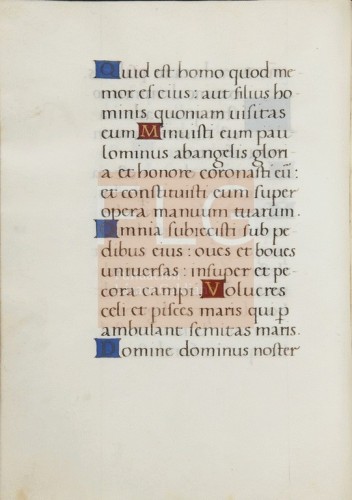 Quid est homo quod me
mor es eius: aut filius ho
minis quoniam visitas
eum Minuisti eum pau
lominus abangelis glori
a et honore coronasti eū:
et constituisti eum super
opera manuum tuarum.
Omnia subiecisti sub pe
dibus eius: oves et boves
universas: insuper et pe
cora campi. Volucres
celi et pisces maris qui ꝑ
ambulant semitas maris.
Domine dominus noster
FLG